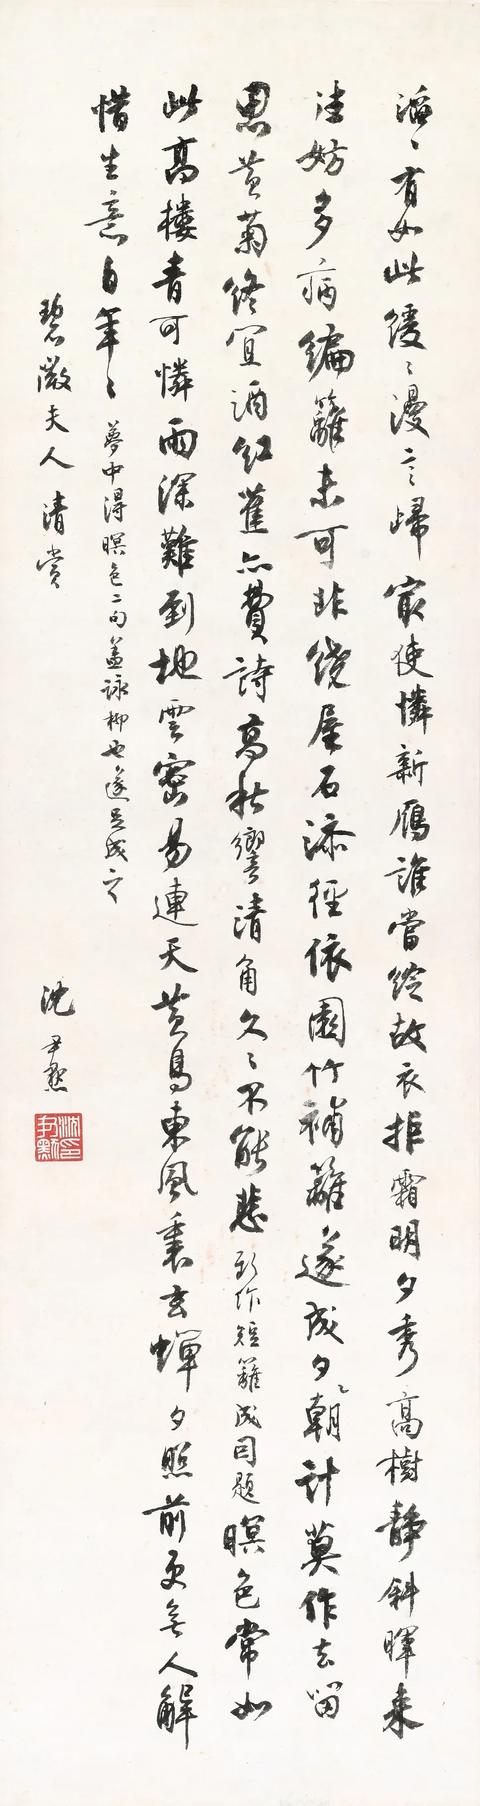 滔〻有如此緩〻漫言歸最使憐新雁誰當給故衣拒霜明夕秀高樹靜斜暉來
往妨多病編籬未可非繞屋石添徑依園竹補籬遂成夕〻朝計莫作去留
思黄菊終宜酒紅蕉亦費詩高秋響清角久〻不能悲新作短籬成因題暝色常如
此高樓青可憐雨深難到地雲密易連天黄鳥東風裏玄蟬夕照前更無人解
惜生意自年〻夢中得暝色二句蓋詠柳也遂足成之
碧微夫人清賞
沈尹默
沈尹默印